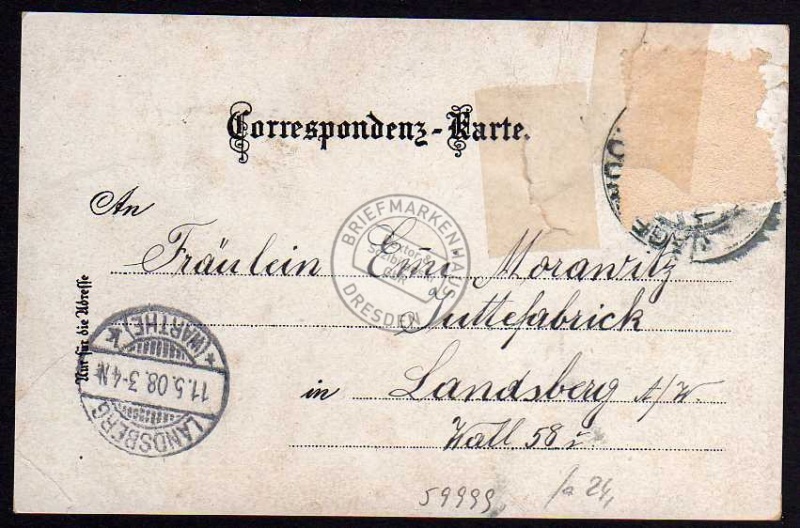 Correspondenz-Karte.
An
Fräulein Emi Morawitz
Juttefabrick
in Landsberg a/W.
Wall 58
Nur für die Adresse
LANDSBERG
* (WARTHE) k
11.5.08. 3-4 N
BRIEFMARKENHAUS
DRESDEN
59999